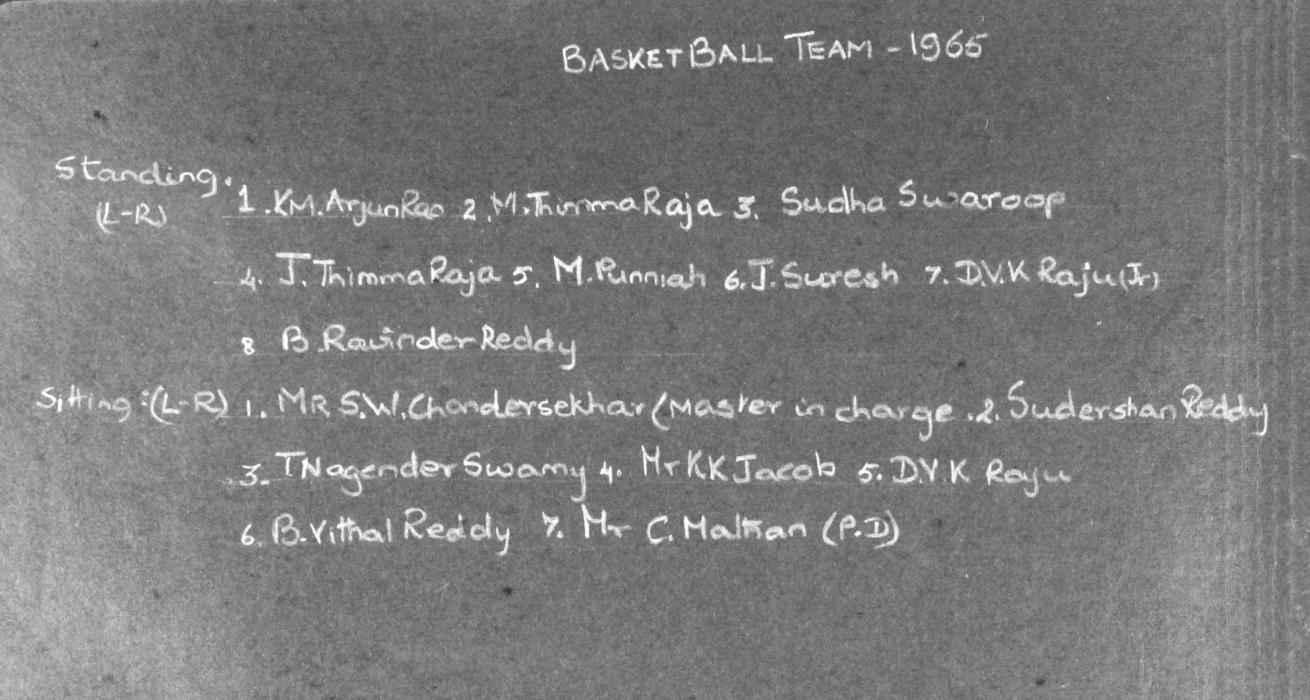 BASKETBALL TEAM - 1965
Standing. 1. KM. Arjun Rao 2. M. Thimma Raja 3. Sudha Swaroop
(L-R)
4. J. Thimma Raja 5. M. Punniah 6. J. Suresh 7. D.V.K Raju (Jr)
8 B. Ravinder Reddy
Sitting :(L-R) 1. MR S.W. Chandersekhar (Master in charge .2. Sudershan Reddy
3. T Nagender Swamy 4. Mr KK Jacob 5. D.V.K Raju
6. B. Vithal Reddy 7. Mr C. (P.D)